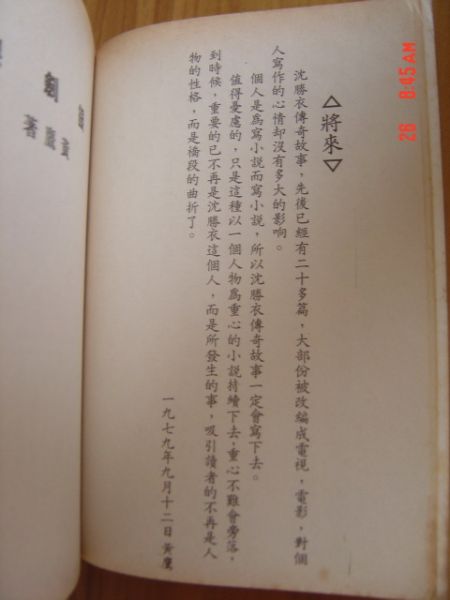 △將來▽
沈勝衣傳奇故事，先後已經有二十多篇，大部份被改編成電視，電影，對個
人寫作的心情却沒有多大的影响。
個人是爲寫小說而寫小說，所以沈勝衣傳奇故事一定會寫下去。
值得憂慮的，只是這種以一個人物爲重心的小說持續下去，重心不難會旁落，
到時候，重要的已不再是沈勝衣這個人，而是所發生的事，吸引讀者的不再是人
物的性格，而是橋段的曲折了。
一九七九年九月十二日 黃鷹
劍
黃鷹著
26 8:45AM